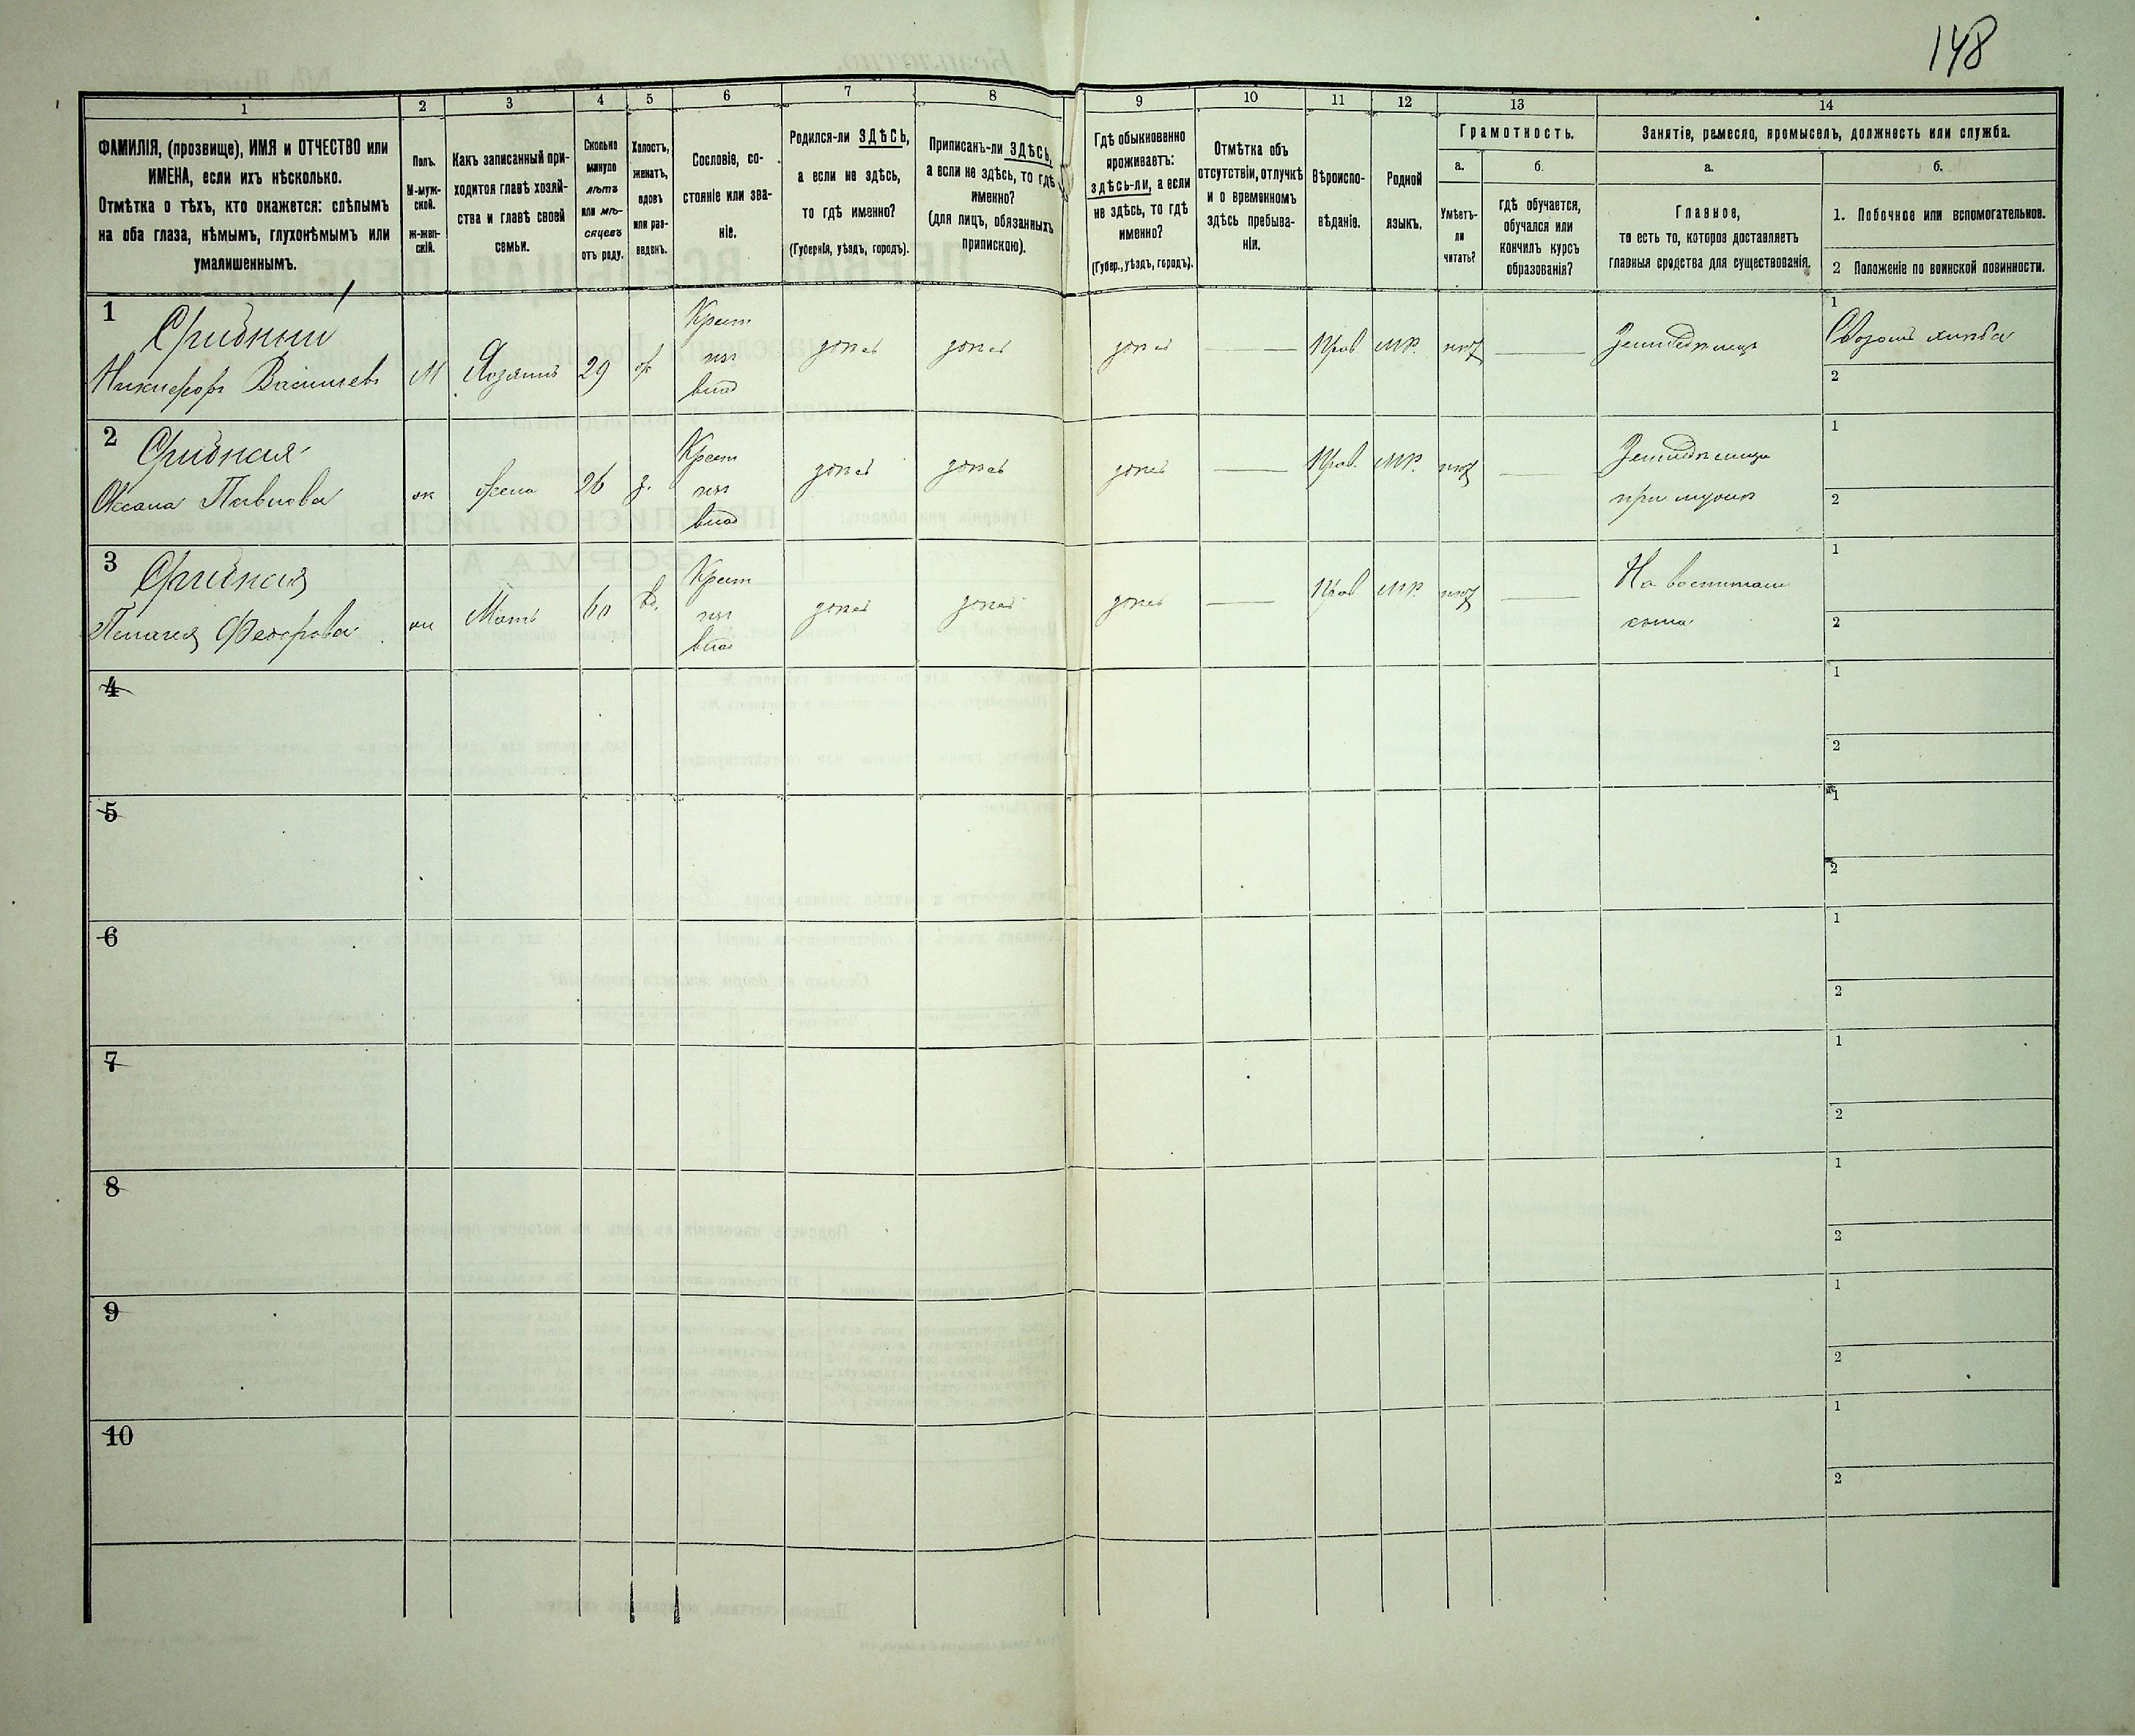 148
1
2
3
4
5
6
7
8
9
10
11
12
13
14
ФАМИЛІЯ, (прозвище), ИМЯ и ОТЧЕСТВО или
ИМЕНА, если ихъ нѣсколько.
Отмѣтка о тѣхъ, кто окажется: слѣпымъ
на оба глаза, нѣмымъ, глухонѣмымъ или
умалишеннымъ.
Полъ.
М-муж-
ской.
Ж-жен-
скій.
Какъ записанный при-
ходится главѣ хозяй-
ства и главѣ своей
семьи.
Сколько
минуло
лѣтъ
или мѣ-
сяцевъ
отъ роду.
Холостъ,
женатъ,
вдовъ
или раз-
веденъ.
Сословіе, со-
стояніе или зва-
ніе.
Родился-ли ЗДѢСЬ,
а если не здѣсь,
то гдѣ именно?
(Губернія, уѣздъ, городъ).
Приписанъ-ли ЗДѢСЬ,
а если не здѣсь, то гдѣ
именно?
(для лицъ, обязанныхъ
припискою).
Гдѣ обыкновенно
проживаетъ:
здѣсь-ли, а если
не здѣсь, то гдѣ
именно?
(Губер., уѣздъ, городъ).
Отмѣтка объ
отсутствіи, отлучкѣ
и о временномъ
здѣсь пребыва-
ніи.
Вѣроиспо-
вѣданіе.
Родной
языкъ.
Грамотность.
а.
Умѣетъ-
ли
читать?
б.
гдѣ обучается,
обучался или
кончилъ курсъ
образованія?
Занятіе, ремесло, промыселъ, должность или служба.
а.
Главное,
то есть то, которое доставляетъ
главныя средства для существованія.
б.
1. Побочное или вспомогательное.
2 Положеніе по воинской повинности.
1
Никифоръ Васильевъ
М
Хозяинъ
29
Крест
влад
здѣсь
здѣсь
здѣсь
Прав
МР.
нѣт
1
2
2
Оксана Павлова
ж
жена
26
з.
Крест
влад
здѣсь
здѣсь
здѣсь
Прав.
МР.
нѣт
при мужѣ
1
2
3
Пелагея Федорова
ж
Мать
60
в.
Крест
влад
здѣсь
здѣсь
здѣсь
Прав
МР.
нѣт
На воспитаніи
сына
1
2
4
1
2
5
1
2
6
1
2
7
1
2
8
1
2
9
1
2
10
1
2